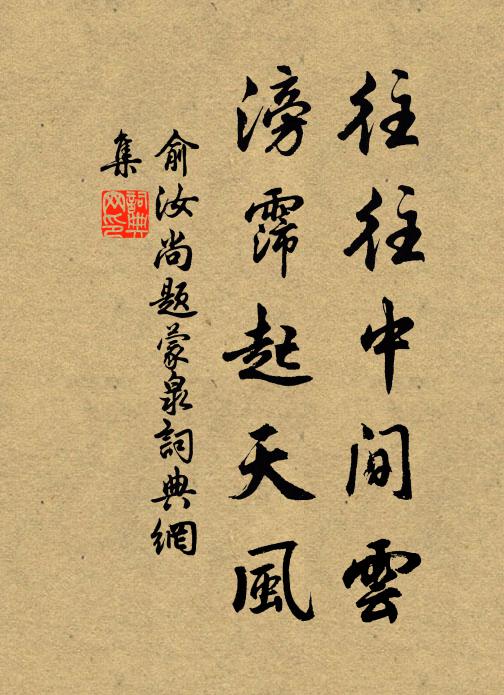 往往中間雲
滂霈起天風
俞汝尚題蒙泉詞典網
集
詞典
网印